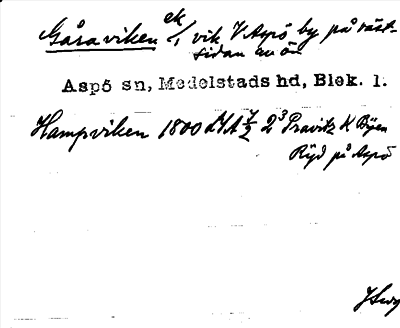 Gåraviken ek/, vik V Aspö by på väst-
sidan av ön
Aspö sn, Medelstads hd, Blek. l.
Hampviken 1800 LSA 7/2 2³ Pravitz K Byen
Ryd på Aspö